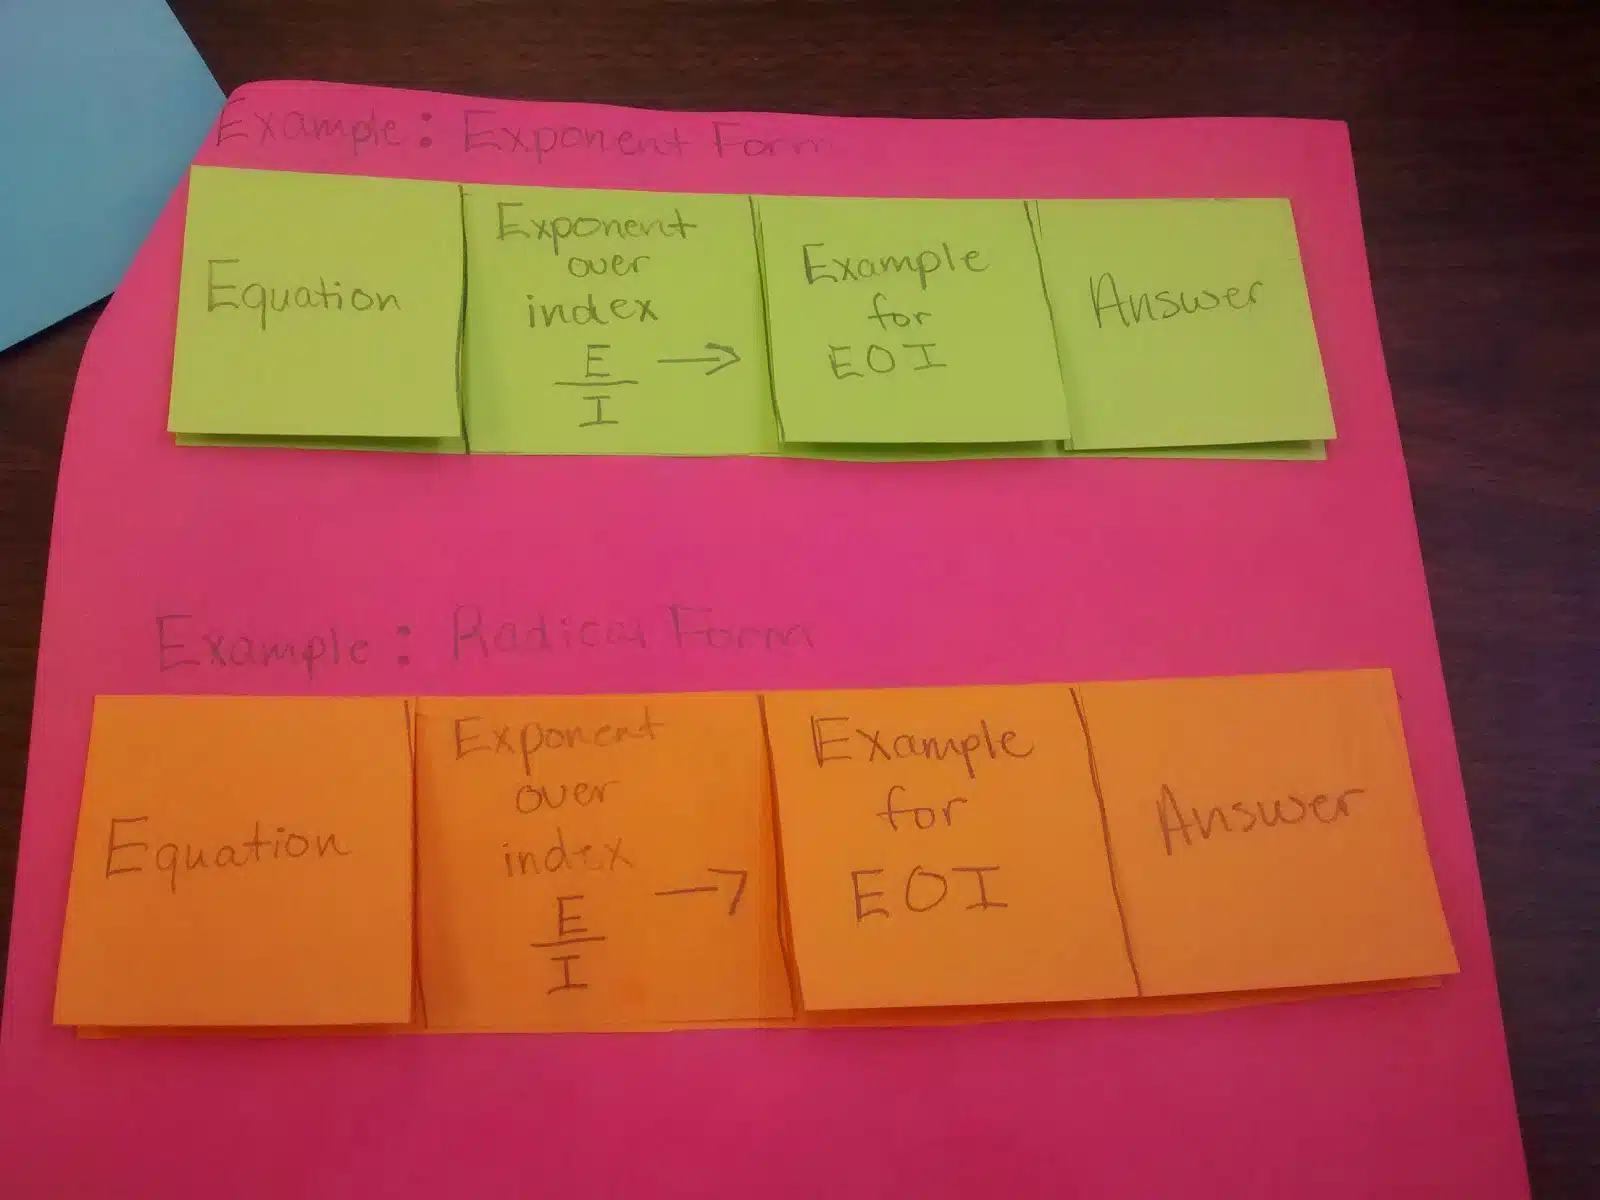 Example: Exponent Form
Equation
Exponent
over
index
E →
I
Example
for
EOI
Answer
Example: Radical Form
Equation
Exponent
over
index
E →
I
Example
for
EOI
Answer